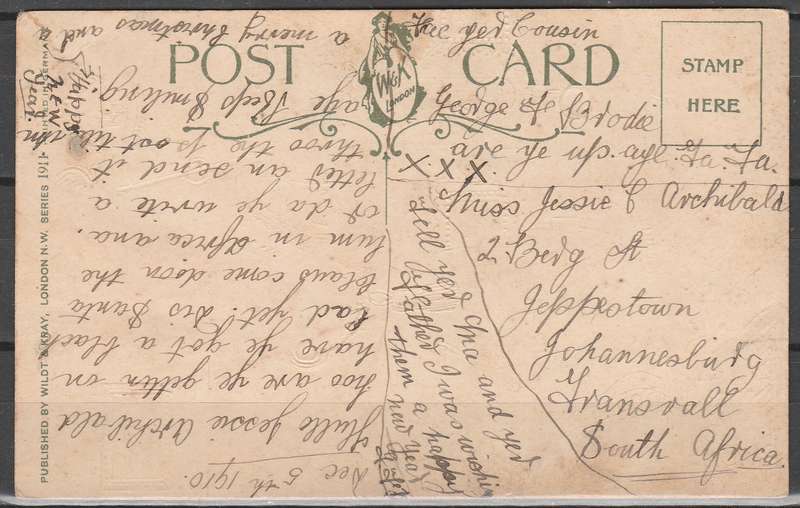 POST CARD
W&K
LONDON
STAMP
HERE
PUBLISHED BY WILDT & KRAY, LONDON N.W. SERIES 1911
Dec 5th 1910.
Hullo Jessie Archibald
hoo are ye gettin on
have ye got a black
lad yet. Dis Santa
Claus come doon the
lum in Africa ana.
or da ye write a
letter an send it
throo the post tell him
aye Keep Smiling
a merry Christmas and a
Happy
New
Year.
Fae yer Cousin
George Le Brodie
are ye up aye. Ta. Ta.
X X X.
Miss Jessie C Archibald
2 Berg St
Jeppestown
Johannesburg
Transvall
South Africa.
Tell yer Ma and yer
Father I was wishin
them a happy
new year